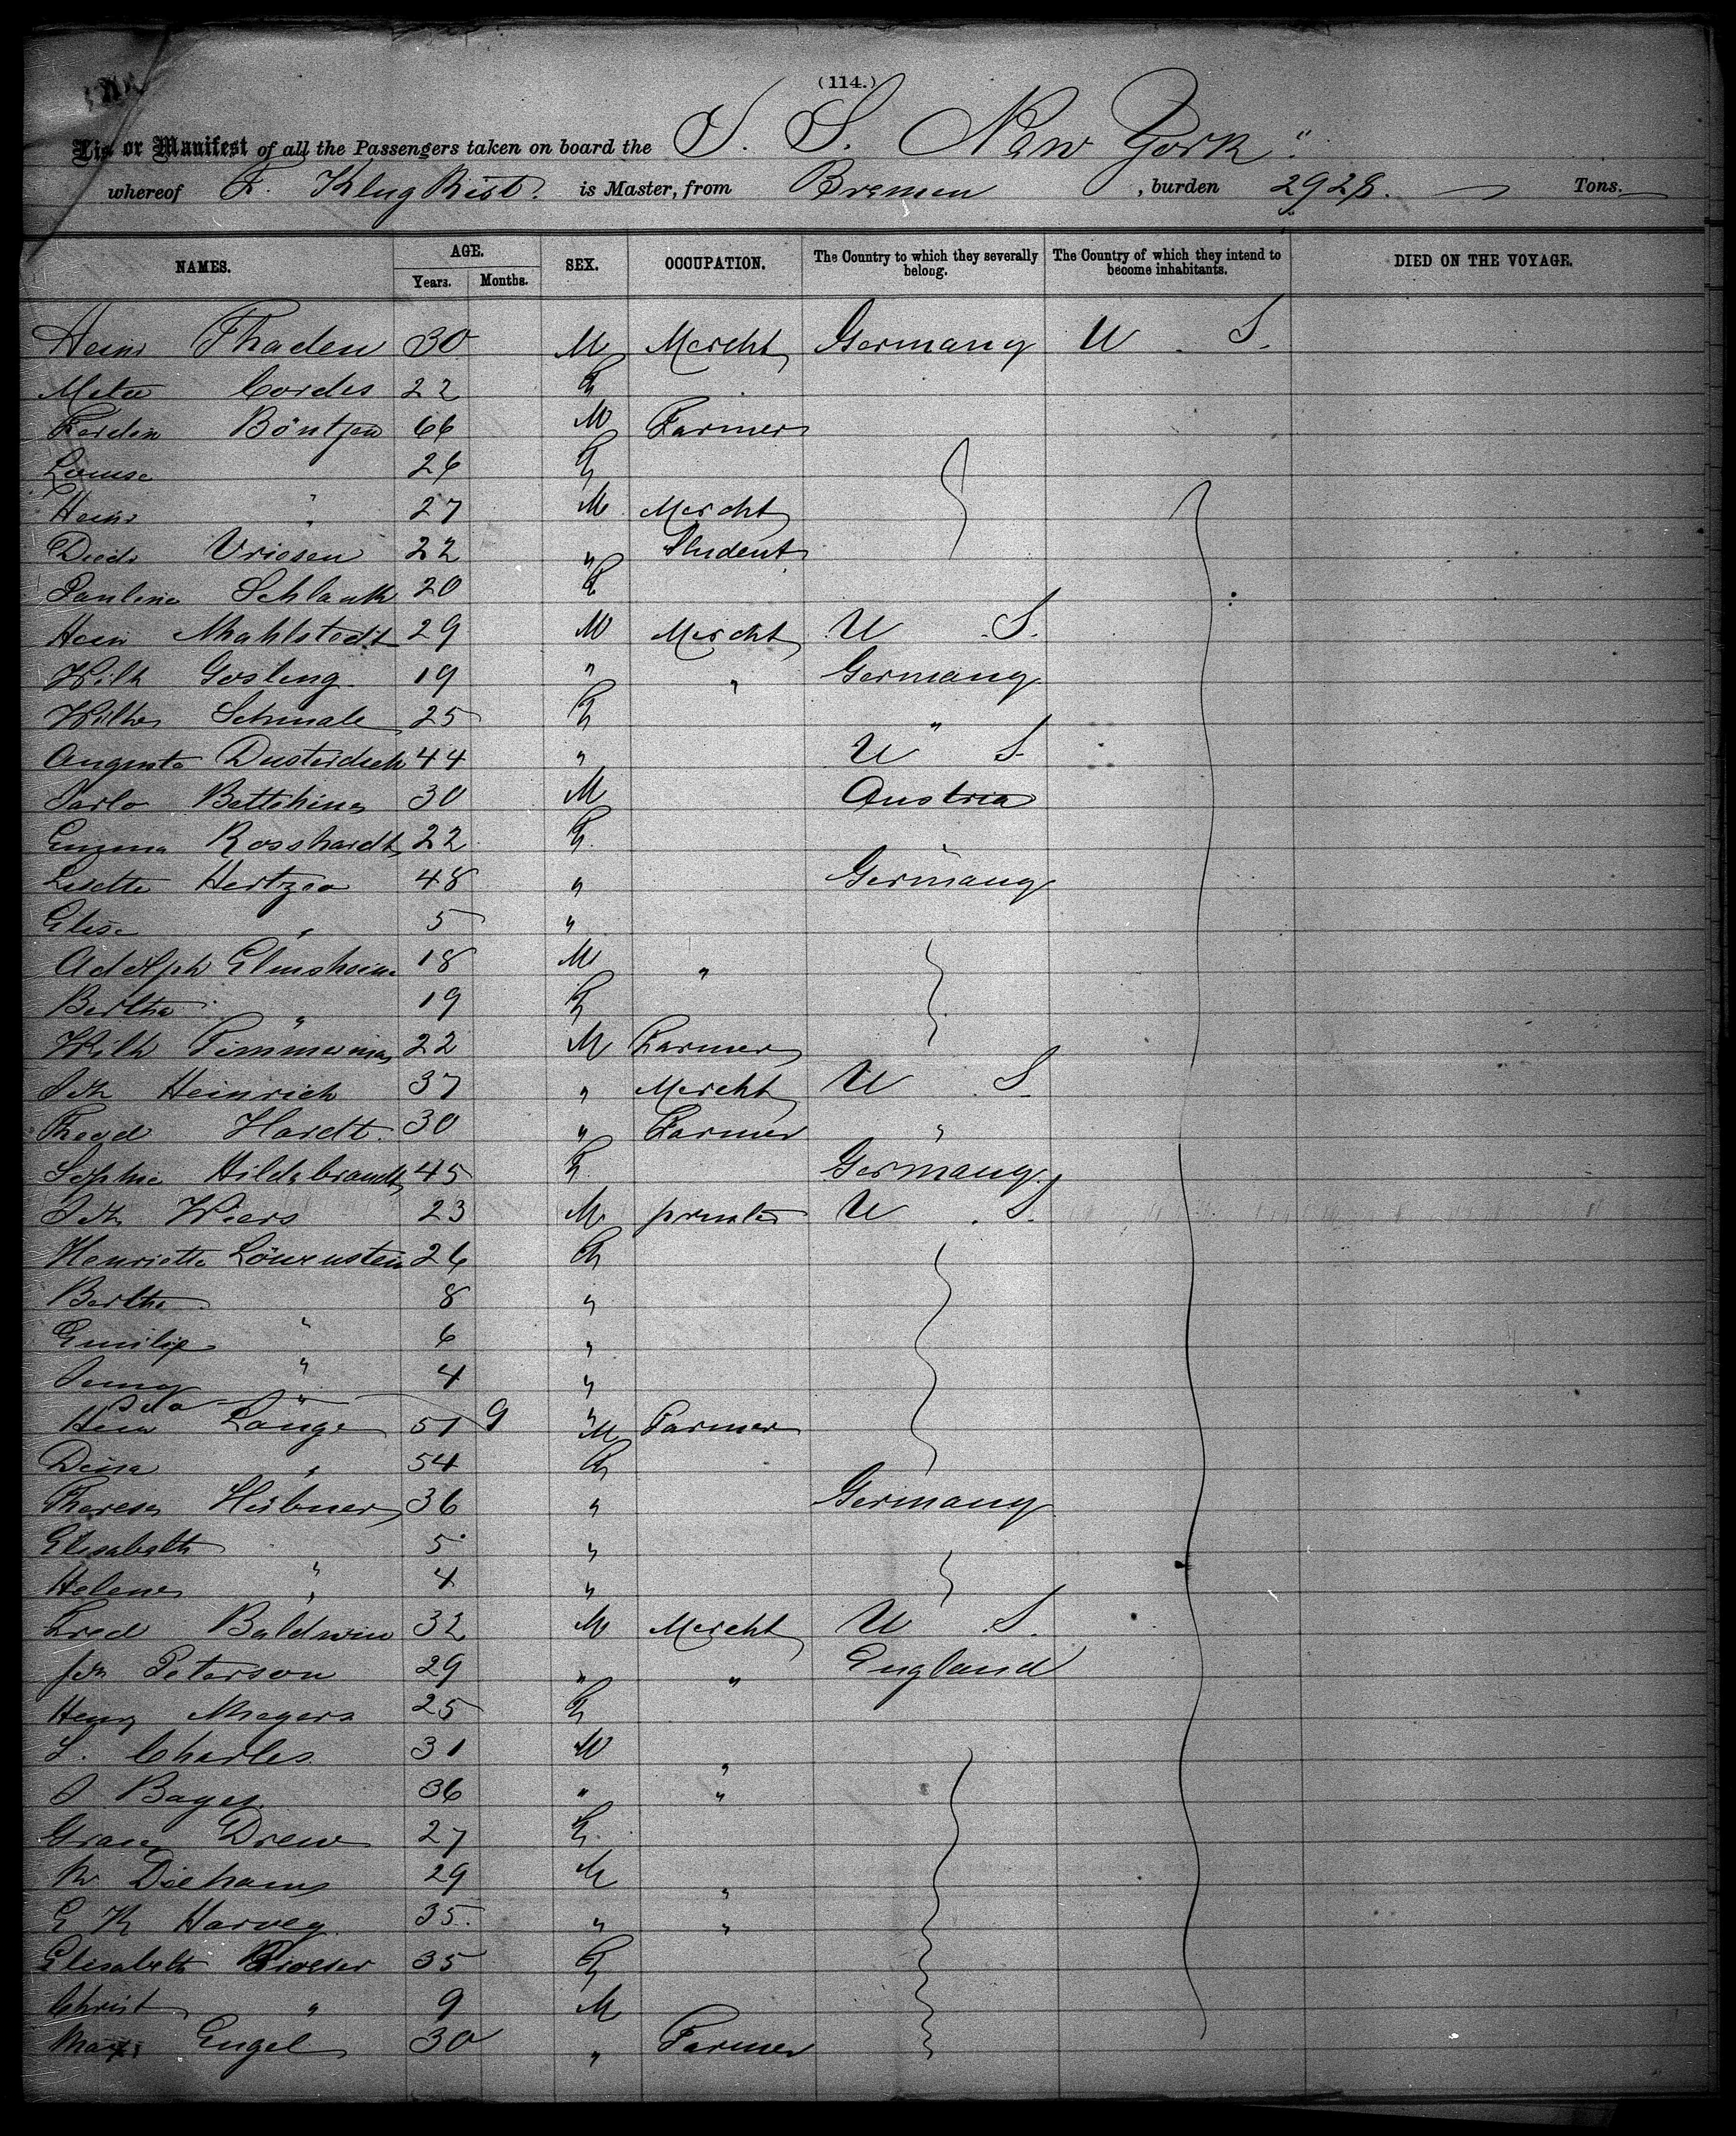 (114.)
List or Manifest of all the Passengers taken on board the S. S. New York"
whereof F. Klugkist. is Master, from Bremen , burden 2928. Tons.
NAMES. AGE. SEX. OCCUPATION. The Country to which they severally belong. The Country of which they intend to become inhabitants. DIED ON THE VOYAGE.
Years. Months.
Heinr Thaden 30 M Mercht Germany U. S.
Meta Cordes 22 F
Ferdin 66 M Farmer
Louise 26 F
Heinr " 27 M Mercht
Diedr Vriesen 22 " Student
Pauline Schlauth 20 F
Heinr Mahlstedt 29 M Mercht U S.
Wilh Gosling 19 " " Germany
Wilhe Schmale 25 F "
Augusta Dusterdieck 44 " U S
Carlo 30 M Austria
Emma Rosshardt 22 F "
Lisette Hertzea 48 " Germany
Elise " 5 "
Adolph 18 M "
Bertha " 19 F
Wilh Timmerman 22 M Farmer
Joh Heinrich 37 " Mercht U. S.
Theod Hardt. 30 " Farmer "
Sophie Hildebrandt 45 F Germany
Joh Wiers 23 M printer U. S.
Henriette Löwenstein 26 F
Bertha " 8 "
Emilie " 6 "
Jenny " 4 "
Ida " 9 "
Heinr Lange 51 M Farmer
Dina " 54 F
Therese Hübner 36 " Germany
Elisabeth " 5 "
Helene " 4 "
Fred Baldwin 32 M Mercht U. S.
Jn Peterson 29 " " England
Henry Meyers 25 F
L. Charles 31 M "
J Bayer 36 " "
Gracy Drew 27 F.
29 M "
G K Harvey 35. " "
Elisabeth 35 F
Christ " 9 M
Max Engel 30 " Farmer